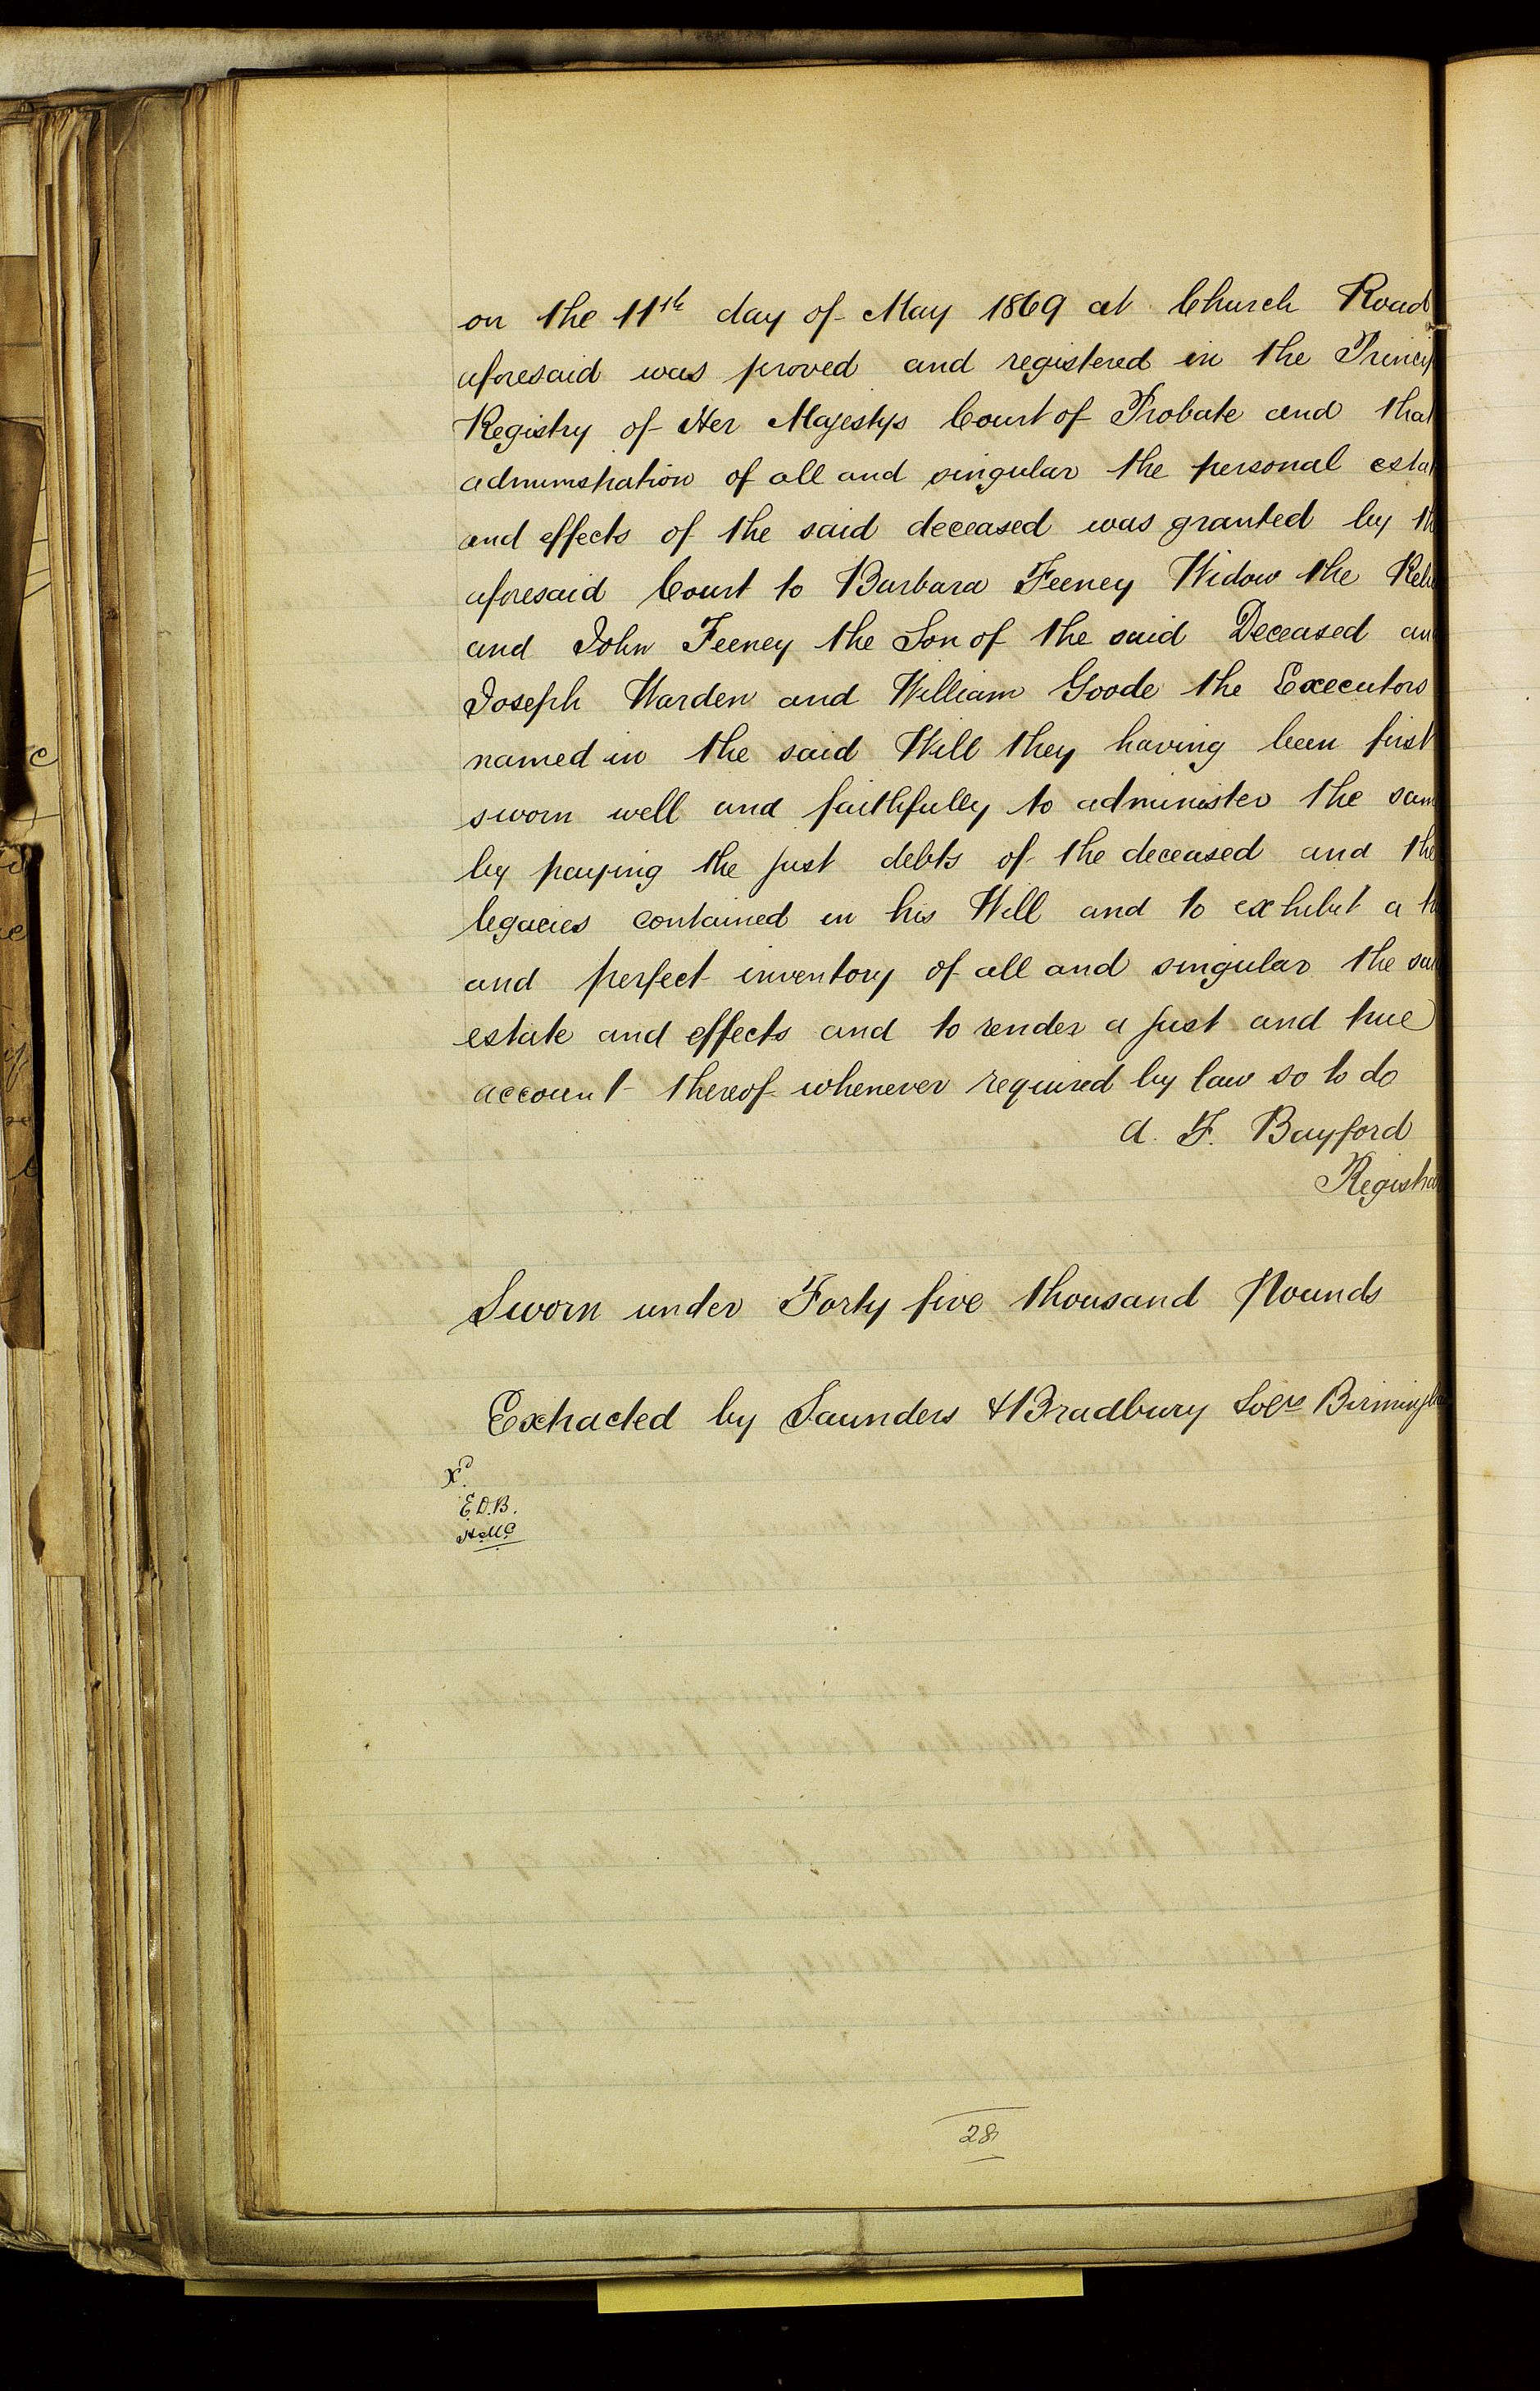 on the 11th day of May 1869 at Church Road
aforesaid was proved and registered in the Princip
Registry of Her Majestys Court of Probate and that
administration of all and singular the personal estat
and effects of the said deceased was granted by th
aforesaid Court to Barbara Feeney Widow the Reli
and John Feeney the Son of the said Deceased an
Joseph Warden and William Goode the Executors
named in the said Will they having been first
sworn well and faithfully to administer the sam
by paying the just debts of the deceased and the
legacies contained in his Will and to exhibit a t
and perfect inventory of all and singular the sai
estate and effects and to render a just and true
account thereof whenever required by law so to do
A. F. Bayford
Registra
Sworn under Forty five thousand Pounds
Extracted by Saunders & Bradbury Solrs Birmingha
xd.
E.D.B.
28